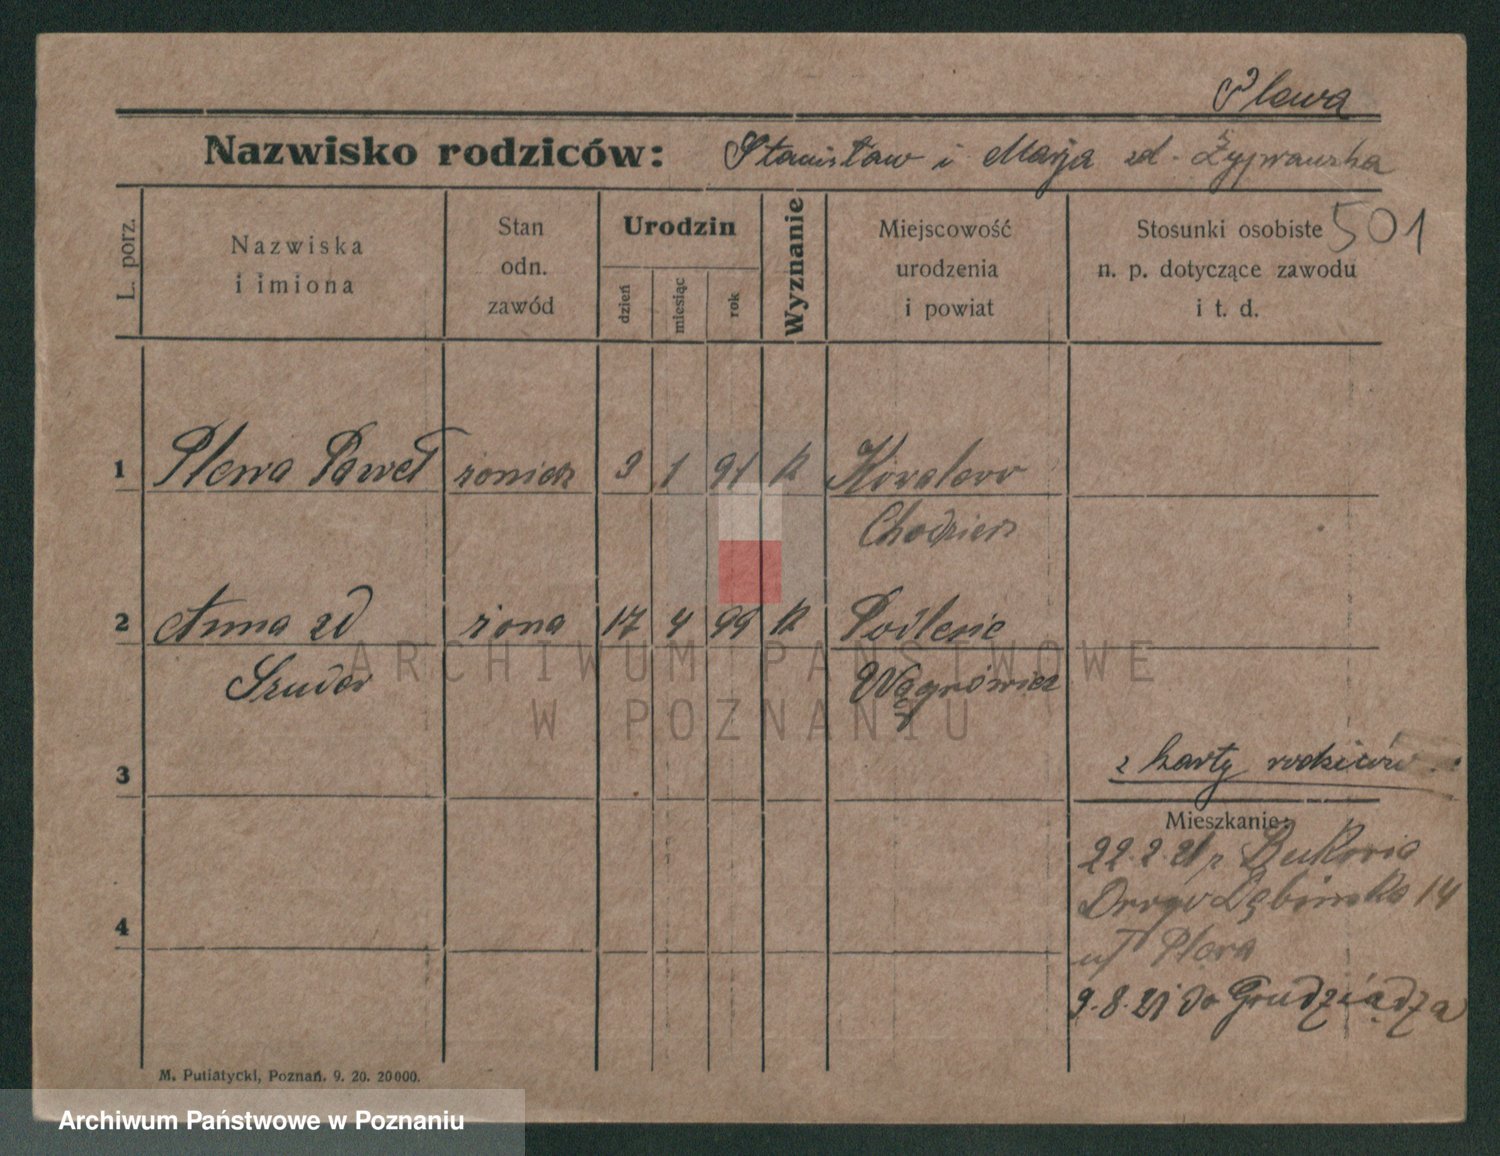 Plewa
Nazwisko rodziców: Stanisław i Marja zd.
501
L. porz.
Nazwiska
i imiona
Stan
odn.
zawód
Urodzin
dzień
miesiąc
rok
Wyznanie
Miejscowość
urodzenia
i powiat
Stosunki osobiste
n. p. dotyczące zawodu
i t. d.
1 Plewa Paweł 3 1 91 k
Chodzież
2 Anna zd żona 17 4 99 k Podlesie
Szuder Wągrówiec
3
z karty rodziców
Mieszkanie:
22.2.21 z
Droga Dębińska 14
9.8.21 do Grudziądza
4
M. Putiatycki, Poznań. 9. 20. 20000.
ARCHIWUM PAŃSTWOWE
W POZNANIU
Archiwum Państwowe w Poznaniu